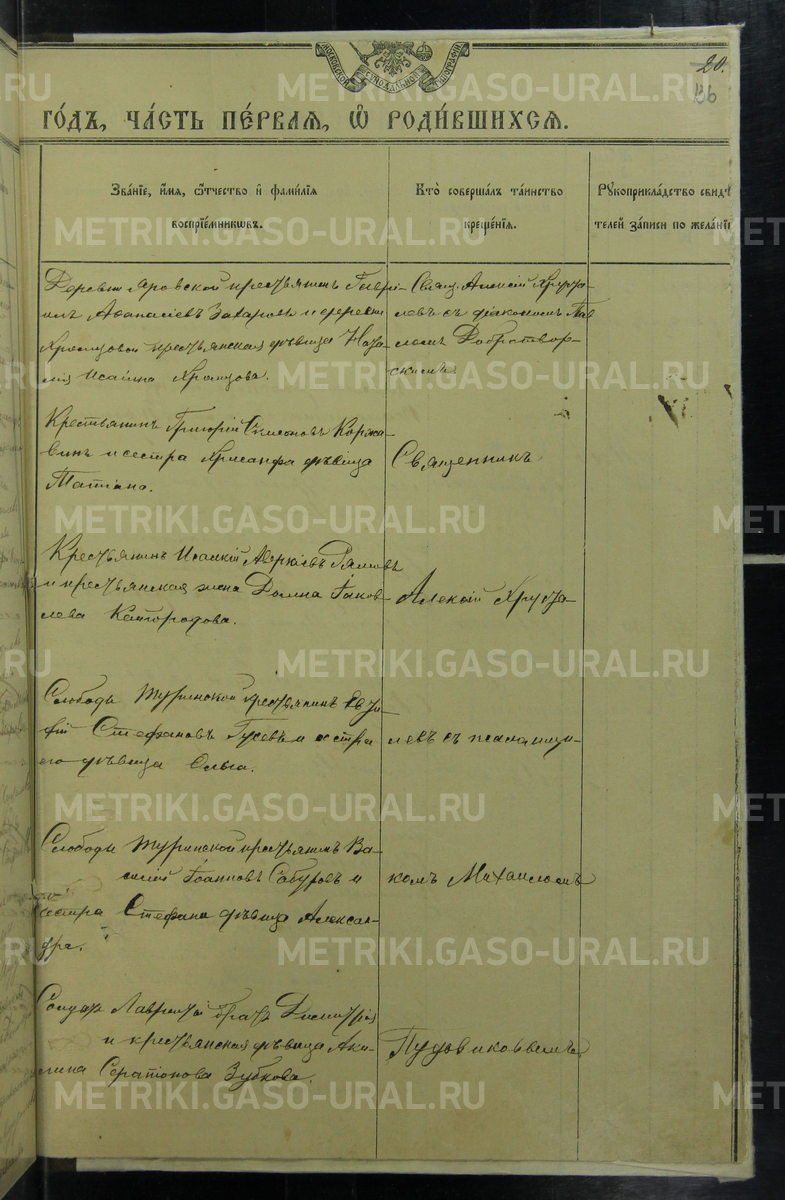 МОСКОВСКОЙ СѴНОДАЛЬНОЙ ТИПОГРАФИИ
20.
ГО́ДЪ, ЧА́СТЬ ПЕ́РВАЯ, Ѡ҆ РОДИ́ВШИХСѦ.
Зва́нїе, и҆́мѧ, ѻ҆́тчество и҆ фами́лїѧ
воспрїе́мникѡвъ.
Кто̀ соверша́лъ та́инство
креще́нїѧ.
Рꙋкоприкла́дство свид
телей за́писи по жела́нї
Деревни Яровской крестьянинъ Гаврі-
илъ Аѳанасіевъ Захаровъ и деревни
Храмцовой крестьянская дѣвица Ната-
лія Исаіина Храмцова.
Свящ. Алексій Хруща-
левъ съ діакономъ Пав
ломъ Добротвор-
скимъ
Крестьянинъ Григорій Симеоновъ Коржа-
винъ и сестра Хрисанфа дѣвица
Татіана.
Священникъ
Крестьянинъ Исаакій Аверкіевъ
и крестьянская жена Домна Іаков-
лева Кайгородова.
Алексій Хруща-
Слободы Туринской крестьянинъ Евѳи-
фій Стефановъ Гусевъ и сестра
его дѣвица Ольга.
левъ съ псаломщи-
Слободы Туринской крестьянинъ Ва-
силій Іоанновъ Сабуровъ и
сестра Стефана дѣвица Алексан-
дра.
комъ Михаиломъ
Солдатъ Лаврентій братъ Димитрія
и крестьянская дѣвица Аки-
лина Серапіонова Зубкова.
Пудовиковымъ
METRIKI.GASO-URAL.RU